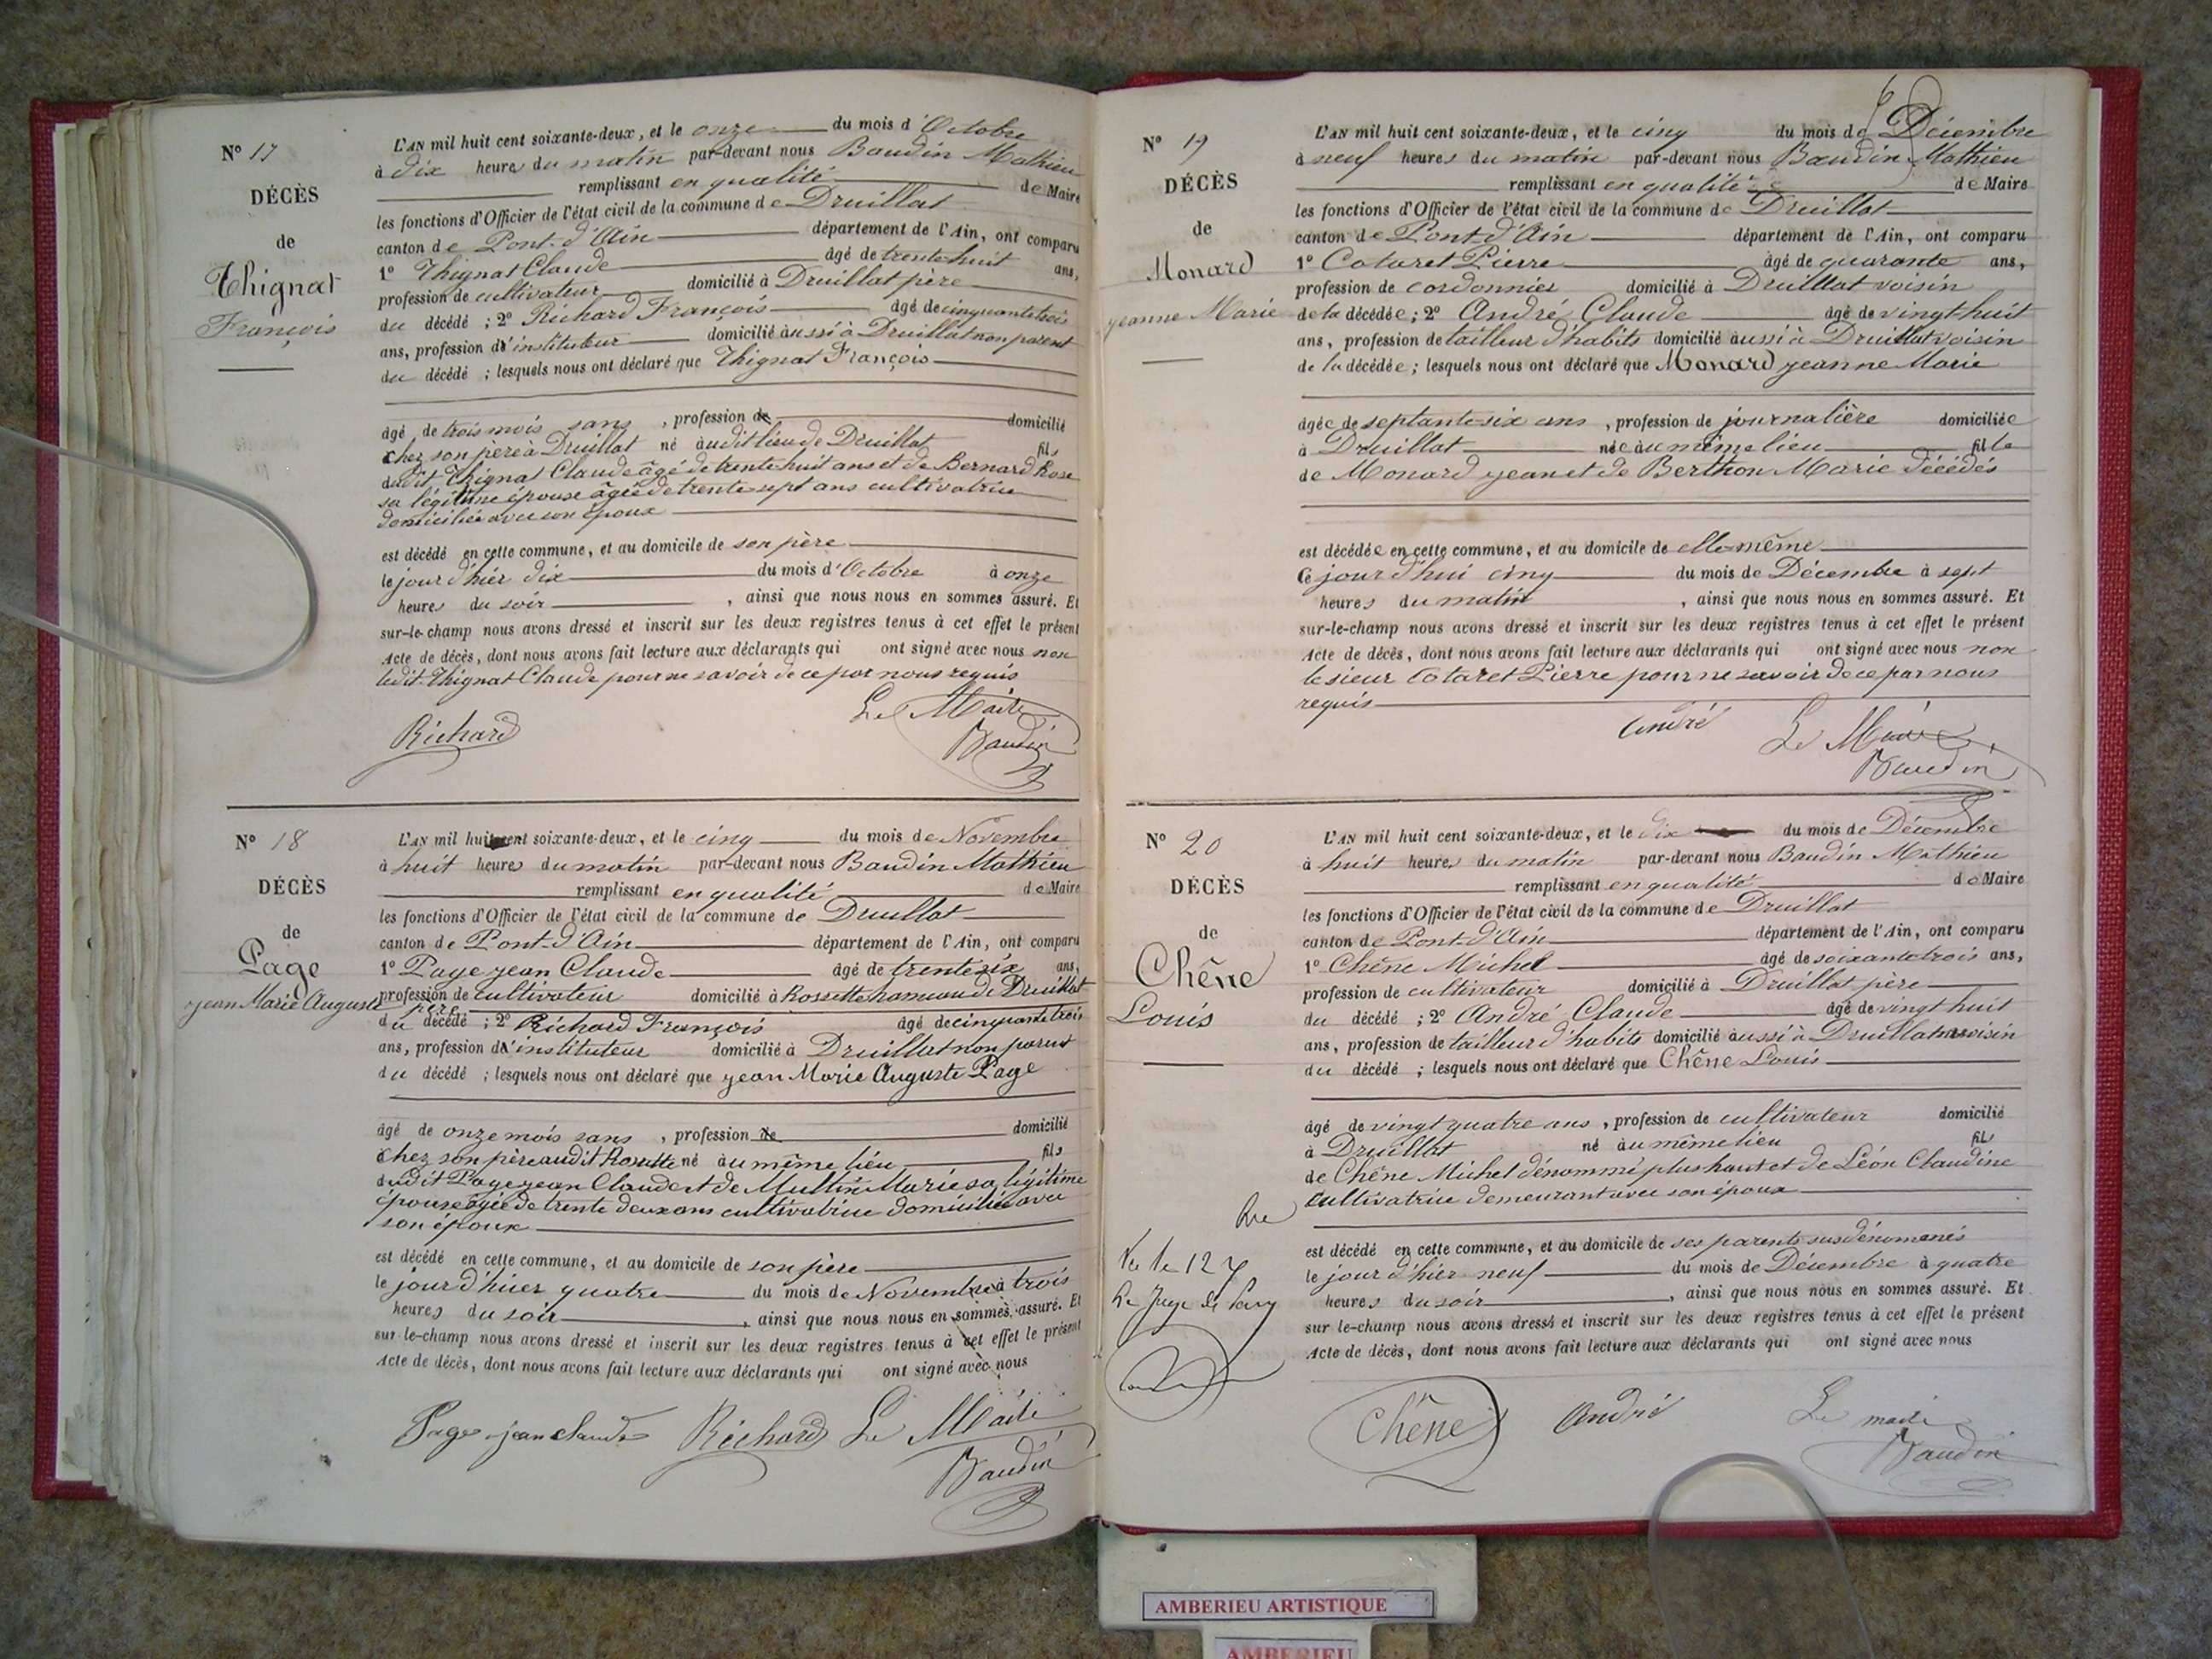 N° 17
DÉCÈS
de
Thignat
François
L'AN mil huit cent soixante-deux, et le onze du mois d'Octobre
à dix heures du matin par-devant nous Baudin Mathieu
remplissant en qualité de Maire
les fonctions d'Officier de l'état civil de la commune de Druillat
canton de Pont-d'Ain département de l'Ain, ont comparu
1° Thignat Claude âgé de trente huit ans,
profession de cultivateur domicilié à Druillat père
du décédé ; 2° Richard François âgé de cinquante trois
ans, profession d'instituteur domicilié aussi à Druillat non parent
du décédé ; lesquels nous ont déclaré que Thignat François
âgé de trois mois sans , profession de domicilié
chez son père à Druillat né audit lieu de Druillat fils
dudit Thignat Claude âgé de trente huit ans et de Bernard Rose
sa légitime épouse âgée de trente sept ans cultivatrice
domiciliée avec son époux
est décédé en cette commune, et au domicile de son père
le jour d'hier dix du mois d'Octobre à onze
heures du soir , ainsi que nous nous en sommes assuré. Et
sur-le-champ nous avons dressé et inscrit sur les deux registres tenus à cet effet le présent
Acte de décès, dont nous avons fait lecture aux déclarants qui ont signé avec nous non
ledit Thignat Claude pour ne savoir de ce par nous requis
Richard Le Maire
Baudin
N° 18
DÉCÈS
de
Page
jean Marie Auguste
L'AN mil huit cent soixante-deux, et le cinq du mois de Novembre
à huit heures du matin par-devant nous Baudin Mathieu
remplissant en qualité de Maire
les fonctions d'Officier de l'état civil de la commune de Druillat
canton de Pont-d'Ain département de l'Ain, ont comparu
1° Page jean Claude âgé de trente six ans,
profession de cultivateur domicilié à Rossette hameau de Druillat
père
du décédé ; 2° Richard François âgé de cinquante trois
ans, profession d'instituteur domicilié à Druillat non parent
du décédé ; lesquels nous ont déclaré que jean Marie Auguste Page
âgé de onze mois sans , profession de domicilié
chez son père audit né au même lieu fils
dudit Page jean Claude et de Marie sa légitime
épouse âgée de trente deux ans cultivatrice domiciliée avec
son époux
est décédé en cette commune, et au domicile de son père
le jour d'hier quatre du mois de Novembre à trois
heures du soir , ainsi que nous nous en sommes assuré. Et
sur-le-champ nous avons dressé et inscrit sur les deux registres tenus à cet effet le présent
Acte de décès, dont nous avons fait lecture aux déclarants qui ont signé avec nous
Page jean claude Richard Le Maire
Baudin
N° 19
DÉCÈS
de
Monard
jeanne Marie
L'AN mil huit cent soixante-deux, et le cinq du mois de Décembre
à neuf heures du matin par-devant nous Baudin Mathieu
remplissant en qualité de Maire
les fonctions d'Officier de l'état civil de la commune de Druillat
canton de Pont-d'Ain département de l'Ain, ont comparu
1° Cotaret Pierre âgé de quarante ans,
profession de cordonnier domicilié à Druillat voisin
de la décédée ; 2° André Claude âgé de vingt huit
ans, profession de tailleur d'habits domicilié aussi à Druillat voisin
de la décédée ; lesquels nous ont déclaré que Monard jeanne Marie
âgée de septante-six ans , profession de journalière domiciliée
à Druillat née au même lieu fille
de Monard jean et de Berthon Marie décédés
est décédée en cette commune, et au domicile de elle même
Ce jour d'hui cinq du mois de Décembre à sept
heures du matin , ainsi que nous nous en sommes assuré. Et
sur-le-champ nous avons dressé et inscrit sur les deux registres tenus à cet effet le présent
Acte de décès, dont nous avons fait lecture aux déclarants qui ont signé avec nous non
le sieur Cotaret Pierre pour ne savoir de ce par nous
requis
andré Le Maire
Baudin
N° 20
DÉCÈS
de
Chêne
Louis
L'AN mil huit cent soixante-deux, et le dix du mois de Décembre
à huit heures du matin par-devant nous Baudin Mathieu
remplissant en qualité de Maire
les fonctions d'Officier de l'état civil de la commune de Druillat
canton de Pont-d'Ain département de l'Ain, ont comparu
1° Chêne Michel âgé de soixante trois ans,
profession de cultivateur domicilié à Druillat père
du décédé ; 2° André Claude âgé de vingt huit
ans, profession de tailleur d'habits domicilié aussi à Druillat voisin
du décédé ; lesquels nous ont déclaré que Chêne Louis
âgé de vingt quatre ans , profession de cultivateur domicilié
à Druillat né au même lieu fils
de Chêne Michel dénommé plus haut et de Léon Claudine
cultivatrice demeurant avec son époux
est décédé en cette commune, et au domicile de ses parents susdénommés
le jour d'hier neuf du mois de Décembre à quatre
heures du soir , ainsi que nous nous en sommes assuré. Et
sur le-champ nous avons dressé et inscrit sur les deux registres tenus à cet effet le présent
Acte de décès, dont nous avons fait lecture aux déclarants qui ont signé avec nous
Vu le 12
Le Juge de
Chêne André Le maire
Baudin
AMBERIEU ARTISTIQUE
AMBERIEU